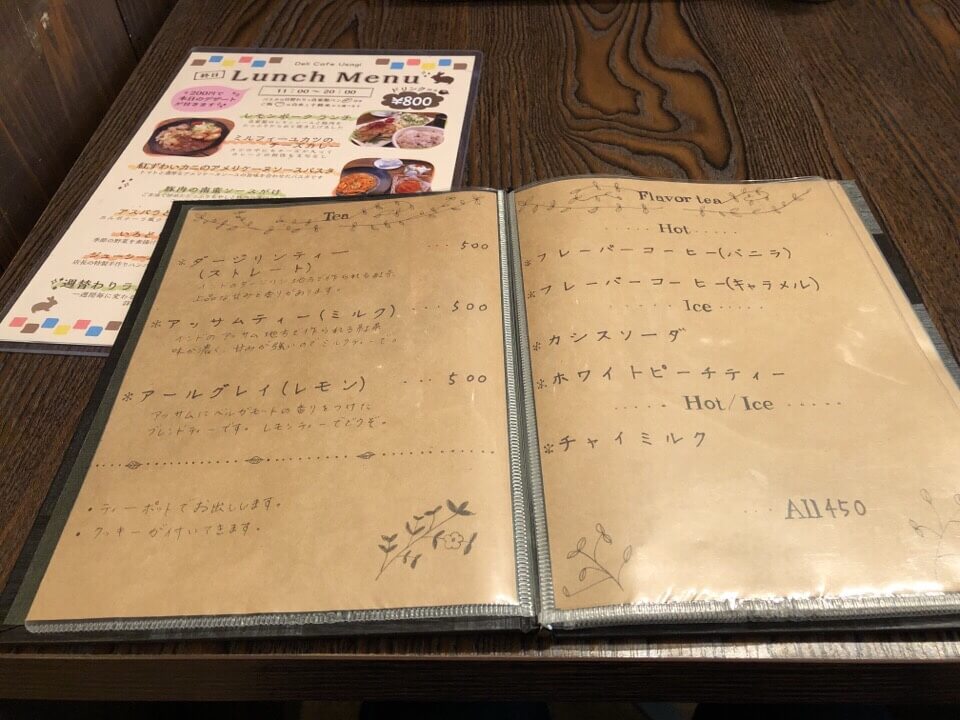 Deli Cafe Usagi
終日 Lunch Menu
11:00~20:00
ドリンク
¥800
+200円で
本日のデザート
が付きます
レモンポークランチ
ミルフィーユカツの
チーズカレー
紅ずわいカニのアメリケーヌソースパスタ
豚肉の南蛮ソースがけ
アスパラと
いろど
季節の野菜を素揚げ
ジューシー
店長の特製手作りハン
週替わりラ
一週間毎に変わる
Tea
*ダージリンティー ... 500
(ストレート)
インドのダージリン地方で作られる紅茶
上品な甘みと香りがあります。
*アッサムティー(ミルク) ... 500
インドのアッサム地方で作られる紅茶
味が濃く、甘みが強いのでミルクティーで。
*アールグレイ(レモン) ... 500
アッサムにベルガモートの香りをつけた
ブレンドティーです。レモンティーでどうぞ。
・ティーポットでお出しします。
・クッキーが付いてきます。
Flavor tea
..... Hot .....
*フレーバーコーヒー(バニラ)
*フレーバーコーヒー(キャラメル)
..... Ice .....
*カシスソーダ
*ホワイトピーチティー
..... Hot/Ice .....
*チャイミルク
... All 450